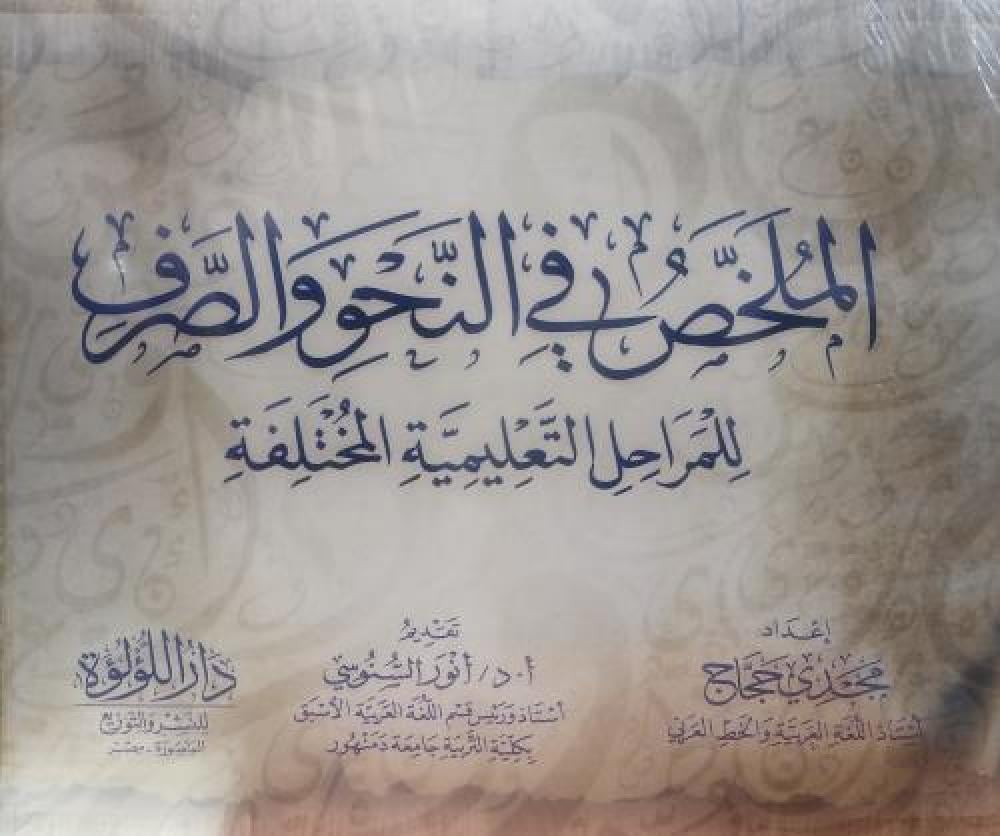 الملُخَّصُ فِي النَّحْوِ وَالصَّرْفِ
لِلْمَرَاحِلِ التَّعْلِيمِيَّةِ المُخْتَلِفَةِ
إعْدَاد
مَجْدِي حَجَّاج
أستاذ اللُّغَةِ العَرَبِيَّةِ وَالخَطِّ العَرَبِي
تَقْدِيمُ
أ.د/ أنْوَر السُّنُوسِي
أسْتَاذ وَرَئِيس قِسْم اللُّغَة العَرَبِيَّة الأسْبَق
بِكُلِّيَّة التَّرْبِيَة جَامِعَة دَمَنْهُور
دَارُ اللُّؤْلُؤَة
للنَّشْرِ وَالتَّوْزِيع
المنصُورَة - مِصْر